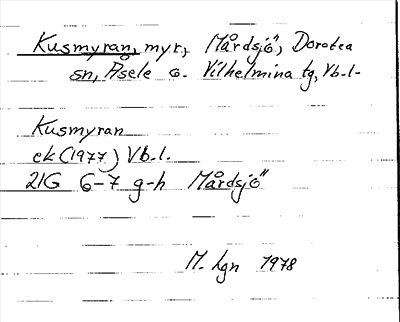 Kusmyran, myr, Mårdsjö, Dorotea
sn, Åsele o. Vilhelmina tg, Vb.l.
Kusmyran
ek (1977) Vb.l.
21G 6-7 g-h Mårdsjö
M. Lgn 1978